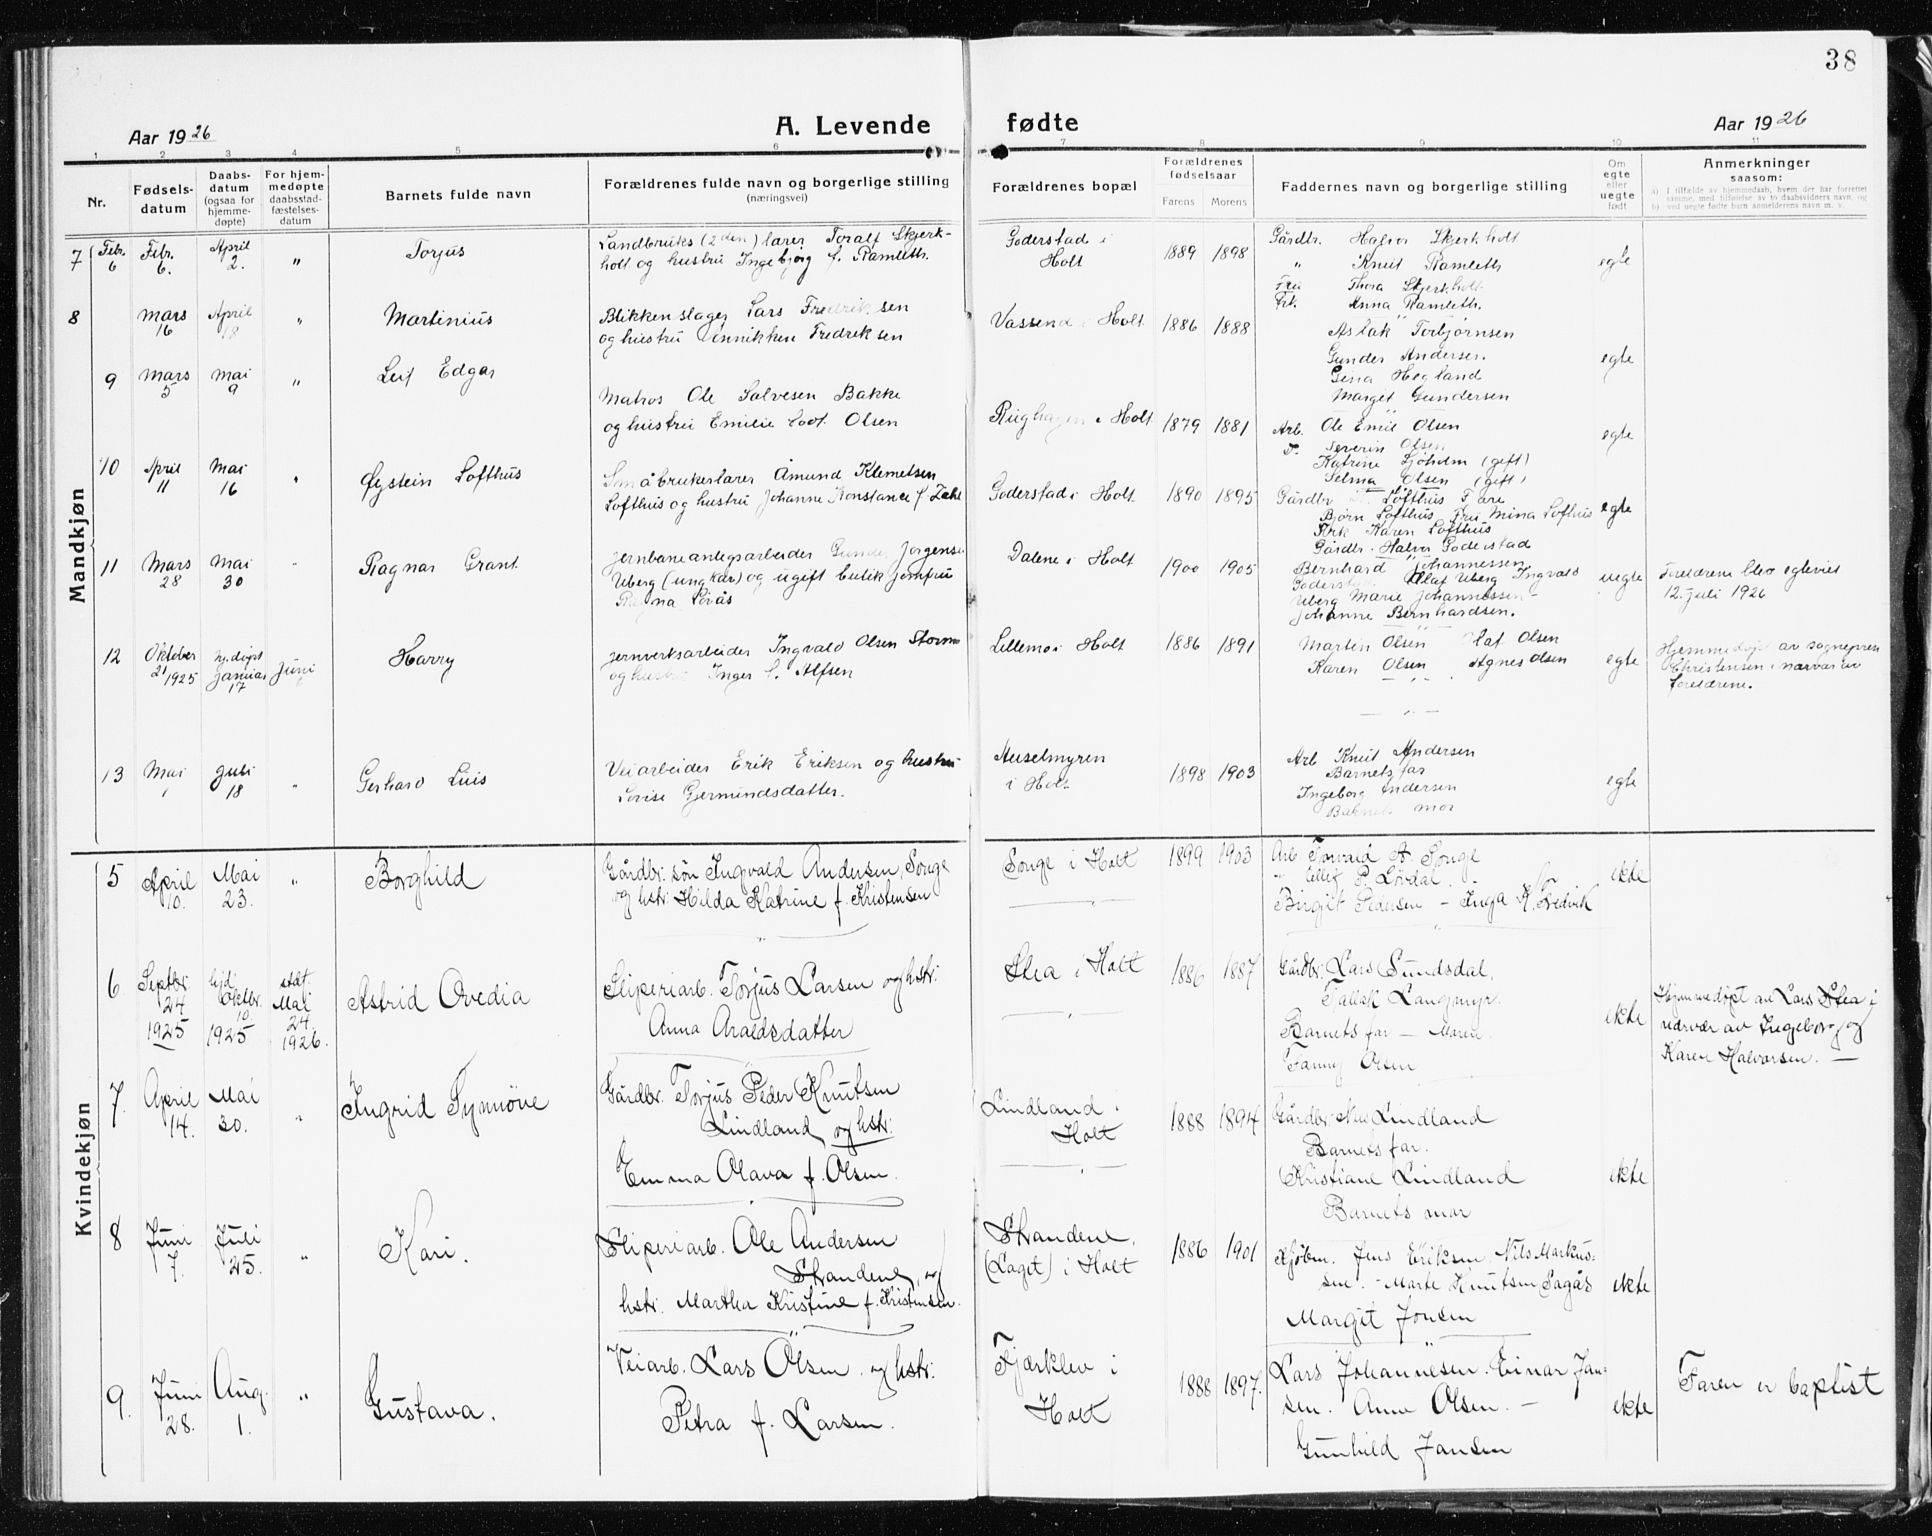 38
Aar 1926
A. Levende fødte
Aar 1926
1 2 3 4 5 6 7 8 9 10 11
Nr.
Fødsels-
datum
Daabs-
datum
(ogsaa for
hjemme-
døpte)
For hjem-
medøpte
daabsstad-
fæstelses-
datum
Barnets fulde navn
Forældrenes fulde navn og borgerlige stilling
(næringsvei)
Forældrenes bopæl
Forældrenes
fødselsaar
Farens Morens
Faddernes navn og borgerlige stilling
Om
egte
eller
uegte
født
Anmerkninger
saasom:
a) I tilfælde av hjemmedaab, hvem der har forrettet
samme, med tilføielse av to daabsvidners navn, og
b) ved uegte fødte barn anmelderens navn m. v.
Mandkjøn
7 Febr. 6 Febr. 6. April 2. " Torjus
Landbruks (2den) lærer Toralf Skjerk-
holt og hustru Ingebjørg f. Ramleth.
Goderstad i
Holt
1889 1898
Gårdbr. Halvor Skjerkholt
" Knut Ramleth
Fru Thora Skjerkholt
Frk. Anna Ramleth.
egte
8 Mars 16 April 18 " Martinius
Blikkenslager Lars Fredriksen
og hustru Annikken Fredriksen
Vassend i Holt
1886 1888
Aslak Torbjørnsen
Gunder Andersen.
Gina Hegland
Margit Gundersen
egte
9 Mars 5 Mai 9 " Leif Edgar
Matros Ole Salvesen Bakke
og hustru Emilie Olsen
Rughagen i Holt
1879 1881
Arb. Ole Emil Olsen
Severin Olsen
Katrine Sjøholm (gift)
Selma Olsen (gift)
egte
10 April 11 Mai 16 " Øystein Lofthus
Småbrukerlærer Åmund Klemetsen
Lofthus og hustru Johanne Konstance f. Zahl
Goderstad i Holt
1890 1895
Gårdbr. Lofthus Fare
Bjørn Lofthus Fru Mina Lofthus
Frk Karen Lofthus
Gårdbr. Halvor Goderstad
egte
11 Mars 28 Mai 30 " Ragnar Grant
Jernbaneanlegsarbeider Gunder Jørgensen
Uberg (ungkar) og ugift butikjomfru
Ragna Løvås
Dalene i Holt
1900 1905
Bernhard Johannessen
Goderstad, Olaf Uberg Ingvald
Uberg Marie Johannessen -
Johanne Bernhardsen.
uegte
Foreldrene blev egteviet
12. juli 1926
12 Oktober 21 1925 hj.døpt januar 17 Juni Harry
Jernverksarbeider Ingvald Olsen Storm
og hustru Inger f. Alfsen
Lillemo i Holt
1886 1891
Martin Olsen Olaf Olsen
Karen Olsen Agnes Olsen
egte
Hjemmedøpt av sogneprest
Christensen i nærvær av
foreldrene.
13 Mai 1 Juli 18 " Gerhard Luis
Veiarbeider Erik Eriksen og hustru
Lovise Gjermundsdatter.
Auselmyren
i Holt
1898 1903
Arb Knut Andersen
Barnets far
Ingeborg Andersen
Barnets mor
egte
Kvindekjøn
5 April 10. Mai 23. " Borghild
Gårdbr. søn Ingvald Andersen Songe
og hstr. Hilda Katrine f. Kristensen
Songe i Holt
1899 1903
Arb. Torvald A. Songe
" Ellef P. Løvdal.
Birgit Pedersen - Inga K. Fredvik
ekte
6 Septbr. 24 1925 hjd. Oktbr. 10 1925 stat. Mai 24 1926. Astrid Ovedia
Sliperiarb. Torjus Larsen og hstr:
Anna Araldsdatter
Stea i Holt
1886 1887
Gårdbr. Lars Sundsdal,
Tallak Langmyr.
Barnets far - Maren
Fanny Olsen
ekte
Hjemmedøpt av Lars Stea i
nærvær av Ingeborg og
Karen Halvorsen. -
7. April 14. Mai 30. " Ingrid Synnøve
Gårdbr. Torjus Peder Knutsen
Lindland og hstr:
Emma Olava f. Olsen.
Lindland i
Holt
1888 1894
Gårdbr. Nils Lindland
Barnets far.
Kristiane Lindland
Barnets mor
ekte
8 Juni 7. Juli 25. " Kari.
Sliperiarb. Ole Andersen
Strandene, og
hstr. Martha Kristine f. Kristensen.
Strandene,
(Laget) i Holt
1886 1901
Kjøbm. Jens Eriksen, Nils Markus-
sen. - Marte Knutsen Sagås
Margit Jonsen
ekte
9. Juni 28. Aug. 1. " Gustava.
Veiarb. Lars Olsen og hstr:
Petra f. Larsen.
Fjærklev i
Holt
1888 1897.
Lars Johannesen. Einar Jan-
sen. Anna Olsen. -
Gunhild Jansen
ekte
Faren er baptist